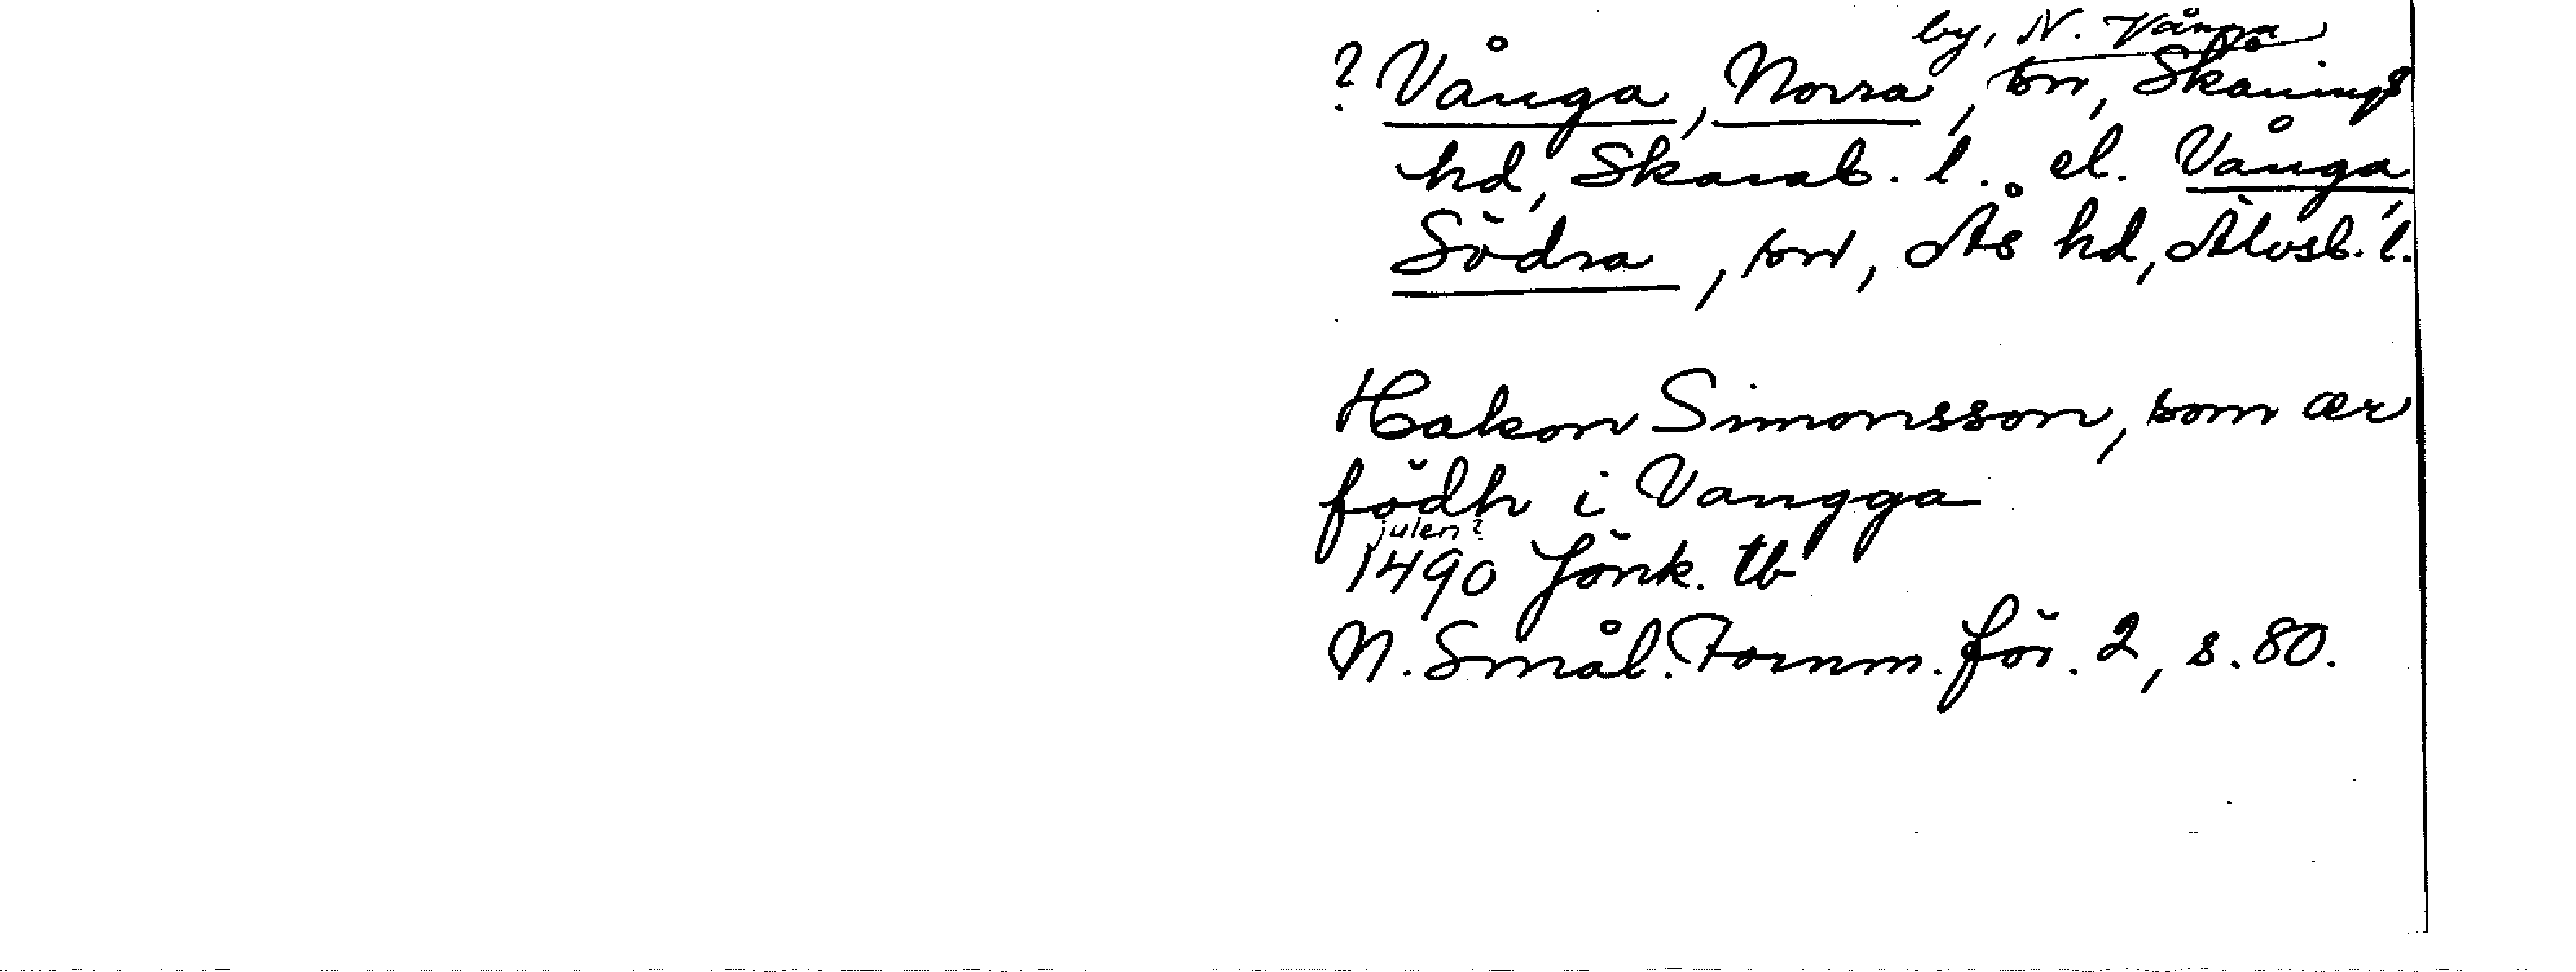 by, N. Vånga
? Vånga, Norra, sn, Skånings
hd, Skarab. l. el. Vånga,
Södra, sn, Ås hd, Älvsb. l.
Hakon Simonsson, som ær
födh i Vangga
julen?
1490 Jönk. tb
N. Smål. Fornm. för. 2, s. 80.